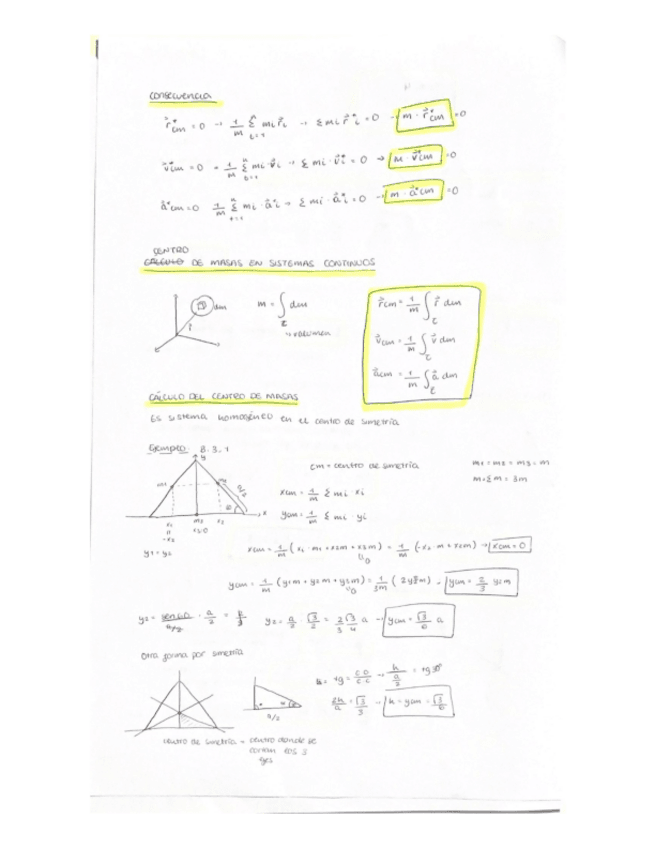 CONSECUENCIA
r⃗*cm = 0 → 1/m Σ mi r⃗i → Σ mi r⃗*i = 0 → m · r⃗*cm = 0
v⃗*cm = 0 = 1/m Σ mi · v⃗i → Σ mi · v⃗*i = 0 → m · v⃗*cm = 0
a⃗*cm = 0 1/m Σ mi · a⃗*i → Σ mi · a⃗*i = 0 → m · a⃗*cm = 0
CENTRO
DE MASAS EN SISTEMAS CONTINUOS
dm
m = ∫ dm
volumen
r⃗cm = 1/m ∫ r⃗ dm
v⃗cm = 1/m ∫ v⃗ dm
a⃗cm = 1/m ∫ a⃗ dm
CÁLCULO DEL CENTRO DE MASAS
Es sistema homogéneo en el centro de simetría
Ejemplo: B.3.1
y
cm = centro de simetría
m1 = m2 = m3 = m
M = Σm = 3m
xcm = 1/m Σ mi · xi
ycm = 1/m Σ mi · yi
a/2
x
x1
-x2
m3
x3=0
x2
y1 = y2
xcm = 1/m (x1 · m1 + x2m + x3m) = 1/m (-x2 · m + x2m) → xcm = 0
ycm = 1/m (y1m + y2m + y3m) = 1/3m (2y2m) → ycm = 2/3 y2
ycm = √3/6 a
Otra forma por simetría
a/2
tg = c.o/c.c → h/(a/2) = tg30°
2h/a = √3/3 → h = ycm = √3/6
centro de simetría = centro donde se
cortan los 3
ejes